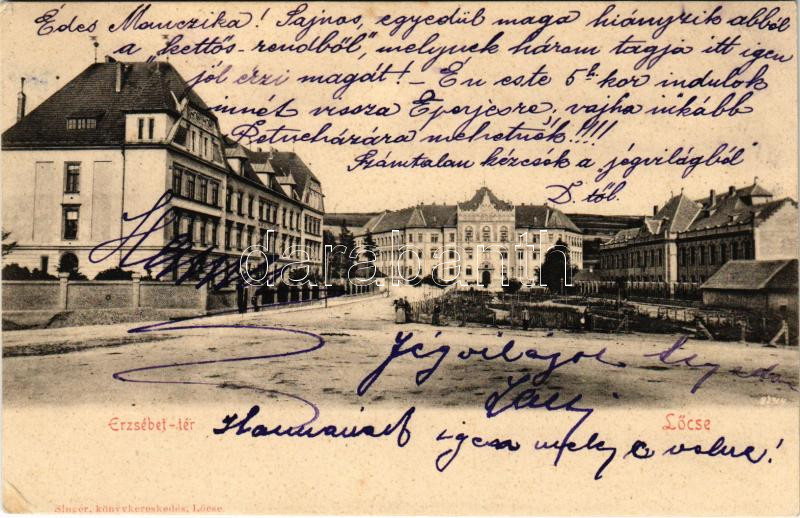 Édes Manczika! Sajnos, egyedül maga hiányzik abból
a "kettős-rendből", melynek három tagja itt igen
jól érzi magát! – Én este 5h-kor indulok
innét vissza Eperjesre, vajha inkább
Petneházára mehetnék!!!!
Számtalan kézcsók a "jégvilágból"
D.től.
darabanth
Erzsébet-tér
Lőcse
igen mely volna!
Singer, könyvkereskedés, Lőcse.